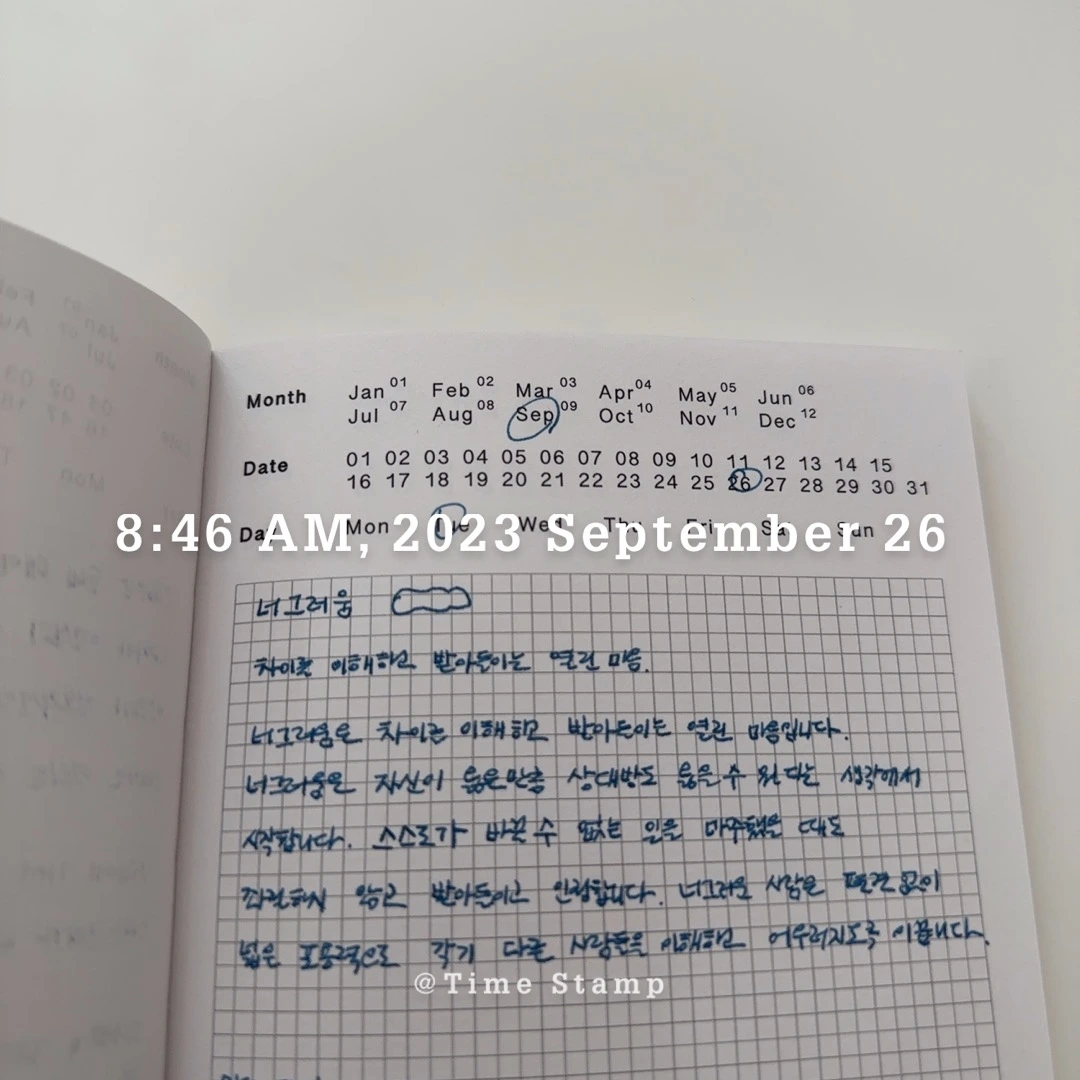 Month Jan 01 Feb 02 Mar 03 Apr 04 May 05 Jun 06
Jul 07 Aug 08 Sep 09 Oct 10 Nov 11 Dec 12
Date 01 02 03 04 05 06 07 08 09 10 11 12 13 14 15
16 17 18 19 20 21 22 23 24 25 26 27 28 29 30 31
Day Mon Tue Wed Thu Fri Sat Sun
8:46 AM, 2023 September 26
너그러움
차이를 이해하고 받아들이는 열린 마음.
너그러움은 차이를 이해하고 받아들이는 열린 마음입니다.
너그러움은 자신이 옳은만큼 상대방도 옳을 수 있다는 생각에서
시작합니다. 스스로가 바꿀 수 없는 일을 마주했을 때도
좌절하지 않고 받아들이고 인정합니다. 너그러운 사람은 편견 없이
넓은 포용력으로 각기 다른 사람들을 이해하고 어우러지도록 이끕니다.
@Time Stamp